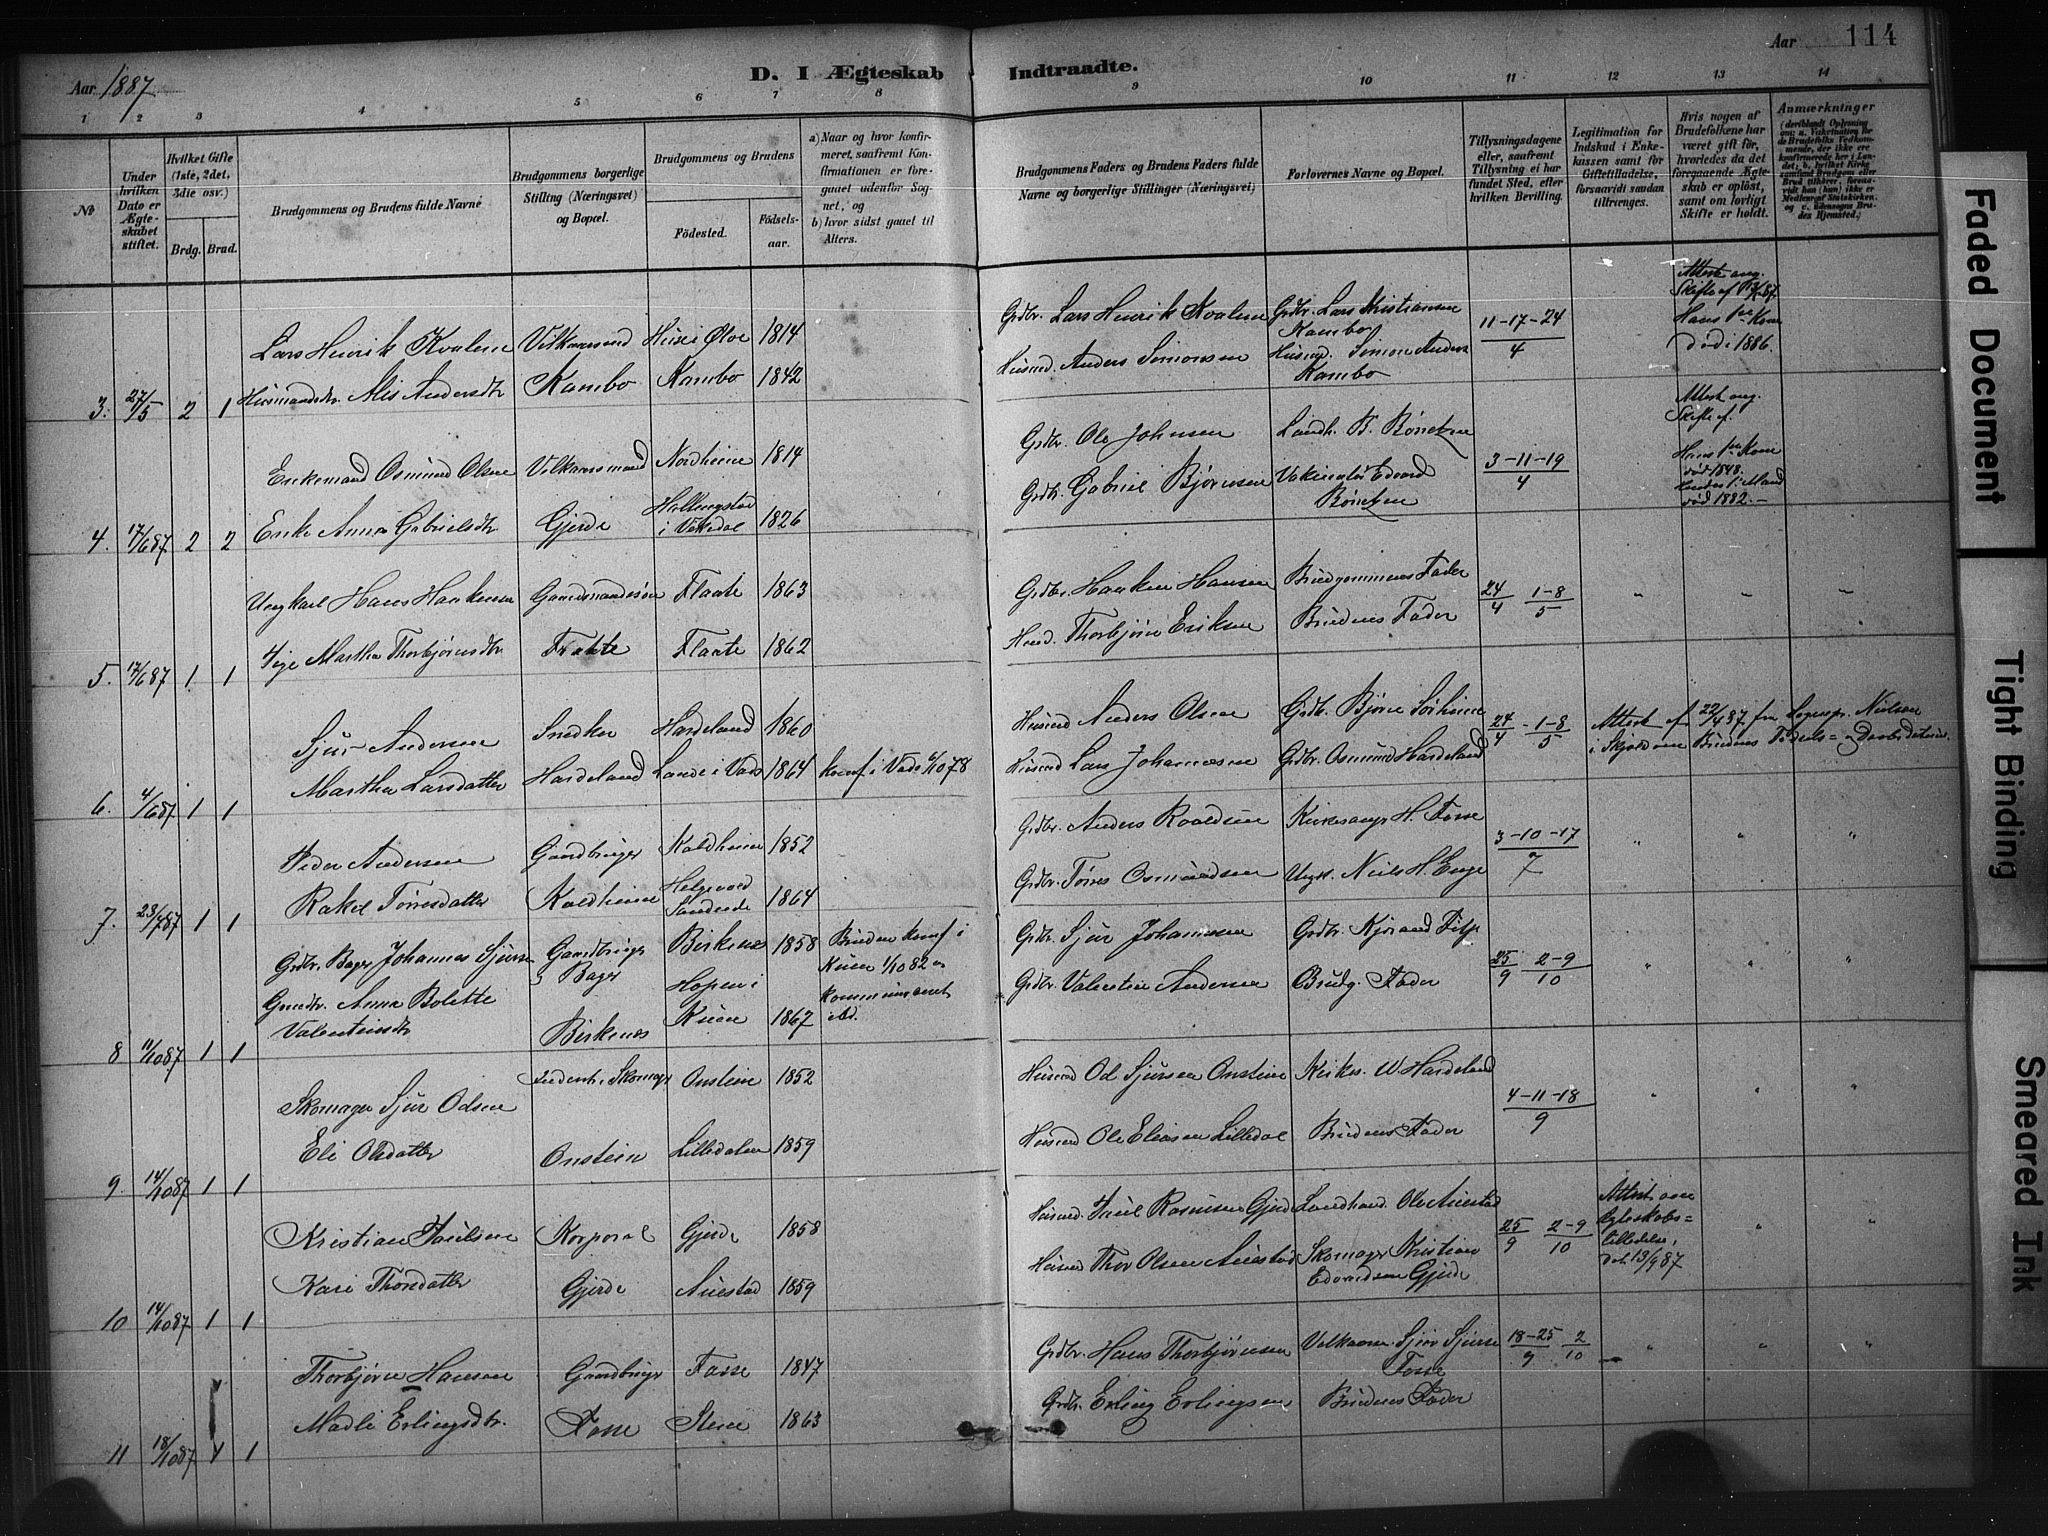 Aar 1887
D. I Ægteskab Indtraadte.
Aar 114
1 2 3 4 5 6 7 8 9 10 11 12 13 14
№
Under hvilken Dato er Ægteskabet stiftet.
Hvilket Gifte (1ste, 2det, 3die osv.)
Brdg. Brud.
Brudgommens og Brudens fulde Navne
Brudgommens borgerlige Stilling (Næringsvei) og Bopæl.
Brudgommens og Brudens
Födested.
Födselsaar.
a) Naar og hvor konfirmeret, saafremt Konfirmationen er foregaaet udenfor Sognet, og
b) hvor sidst gaaet til Alters.
Brudgommens Faders og Brudens Faders fulde Navne og borgerlige Stillinger (Næringsvei)
Forlovernes Navne og Bopæl.
Tillysningsdagene eller, saafremt Tillysning ei har fundet Sted, efter hvilken Bevilling.
Legitimation for Indskud i Enkekassen samt for Giftetilladelse, forsaavidt saadan tiltrænges.
Hvis nogen af Brudefolkene har været gift før, hvorledes da det foregaaende Ægteskab er oplöst, samt om lovligt Skifte er holdt.
Anmærkninger
3. 27/5 2 1
Lars Henrik Kvalene Husei Ølve 1814
Husmandsdtr. Alis Andersdtr Kambo Kambo 1842
Grdbr. Lars Henrik Kvalene Grdbr. Lars Kristiansen Kambo
Husmd. Anders Simonsen Husmd. Simon Anders Kambo
11-17-24/4
Attest ang. Skifte af
Hans 1ste Kone död i 1886.
4. 17/6 87 2 2
Enkemand Osmund Olsen Vilkaarsmand Nordheim 1814
Enke Anna Gabrielsdtr Gjerde Hallingstad i Vikedal 1826
Grdbr. Ole Johnsen Landh. B. Böretzen
Grdbr. Gabriel Bjørnsen Vakcinatör Edvard Böretzen
3-11-19/4
Attest ang. Skifte af.
Hans 1ste Kone död 1848. Hendes 1. Mand död 1882.
5. 17/6 87 1 1
Ungkarl Hans Haakensen Gaardmandssön Flaate 1863
Pige Martha Thorbjørnsdtr Flaate Flaate 1862
Grdbr. Haaken Hansen Brudgommens Fader
Husmd. Thorbjørn Eriksen Brudens Fader
24/4 1-8/5 " " "
6. 4/6 87 1 1
Sjur Andersen Snedker Hardeland 1860
Martha Larsdatter Hardeland Lande i Vads 1864 konf. i Vads 6/10 78
Husmd Anders Olsen Grdbr. Bjørn Sørheim
Husmd Lars Johannesen Grdbr. Osmund Hardeland
24/4 - 1-8/5
Attest af 22/4 87 fra Sogepr. Nielsen i Skjold om Brudens Födsels= og Daabsdatum.
7. 23/7 87 1 1
Peder Andersen Gaardbruger Kaldheim 1852
Rakel Törresdatter Kaldheim Helgevold Sandeide 1864
Grdbr. Anders Roaldsen Kirkesanger H. Fosse
Grdbr. Törres Osmundsen Ungk. Niels H. Enge
3-10-17/7 " " "
8 11/10 87 1 1
Grdbr. Bager Johannes Sjursen Gaardbruger & Bager Birkenes 1858
Grmdtr. Anna Bolette Valentinsdtr Birkenes Hopen i 1867
Bruden konf. i 1/10 82 og kommuniceret
Grdbr. Sjur Johannesen Grdbr. Kjørand
Grdbr. Valentin Andersen Brudg. Fader
25/9 2-9/10 " " "
9 14/10 87 1 1
Skomager Sjur Odsen Inderst. Skomager Onstein 1852
Eli Olsdatter Onstein Lilledalen 1859
Husmd Od Sjursen Onstein Kirkes. W. Hardeland
Husmd Ole Eliasen Lilledal Brudens Fader
4-11-18/9 " " "
10 14/10 87 1 1
Kristian Paulsen Korporal Gjerde 1858
Kari Thorsdatter Gjerde Austad 1859
Husmd. Paul Rasmusen Gjerde Landhand. Ole Austad
Husmd Thor Olsen Austad Skomager Kristian Edvardsen Gjerde
25/9 2-9/10
Attest om Egteskabs=tilladelse, dat. 13/9 87 " "
11 18/10 87 1 1
Thorbjørn Hansen Gaardbruger Fosse 1847
Madli Erlingsdtr. Fosse Stene 1863
Grdbr. Hans Thorbjørnsen Vilkaarm. Sjur Sjursen Fosse
Grdbr. Erling Erlingsen Brudens Fader
18-25/9 2/10 " " "
Faded Document
Tight Binding
Smeared Ink